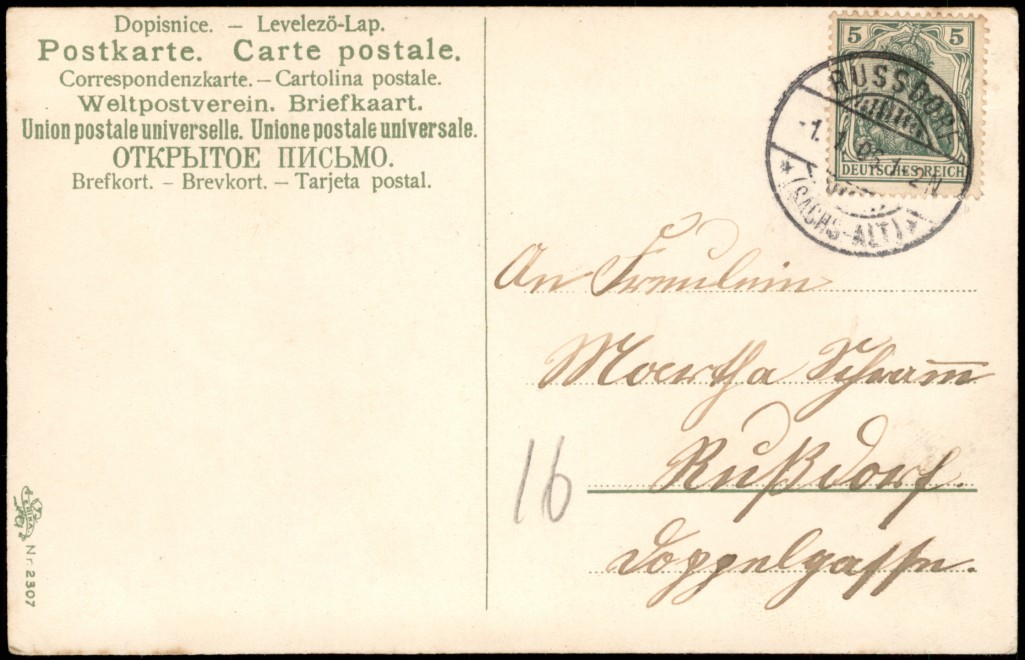 Dopisnice. — Levelező-Lap.
Postkarte. Carte postale.
Correspondenzkarte. — Cartolina postale.
Weltpostverein. Briefkaart.
Union postale universelle. Unione postale universale.
ОТКРЫТОЕ ПИСЬМО.
Brefkort. — Brevkort. — Tarjeta postal.
5 5
DEUTSCHES REICH
RUSSDORF
-1.1.06.1-2N
*(SACHS-ALT)*
An Freulein
Moertha Schram̅
Rußdorf.
Doppelgasse.
16
Nr. 2307